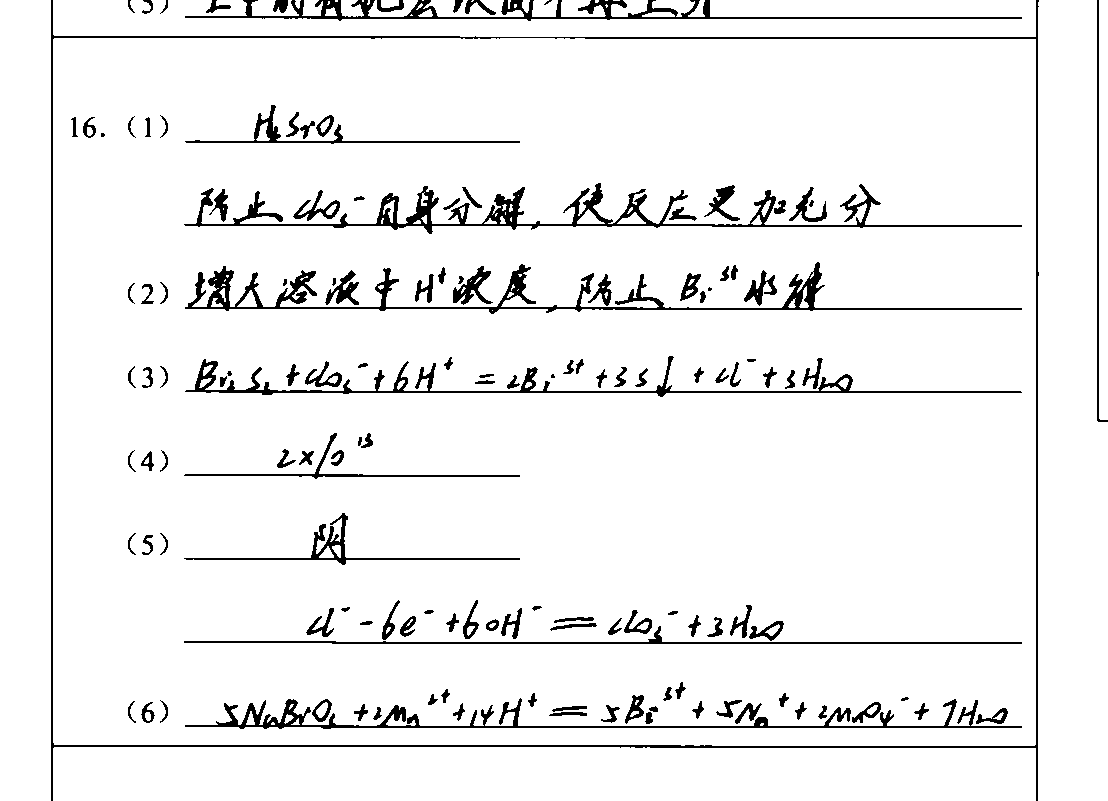 16. (1) H₂SiO₃
防止ClO₃⁻自身分解, 使反应更加充分
(2) 增大溶液中H⁺浓度, 防止Bi³⁺水解
(3) Bi₂S₃+ClO₃⁻+6H⁺=2Bi³⁺+3S↓+Cl⁻+3H₂O
(4) 2×10¹³
(5) 阴
Cl⁻-6e⁻+6OH⁻=ClO₃⁻+3H₂O
(6) 5NaBiO₃+2Mn²⁺+14H⁺=5Bi³⁺+5Na⁺+2MnO₄⁻+7H₂O